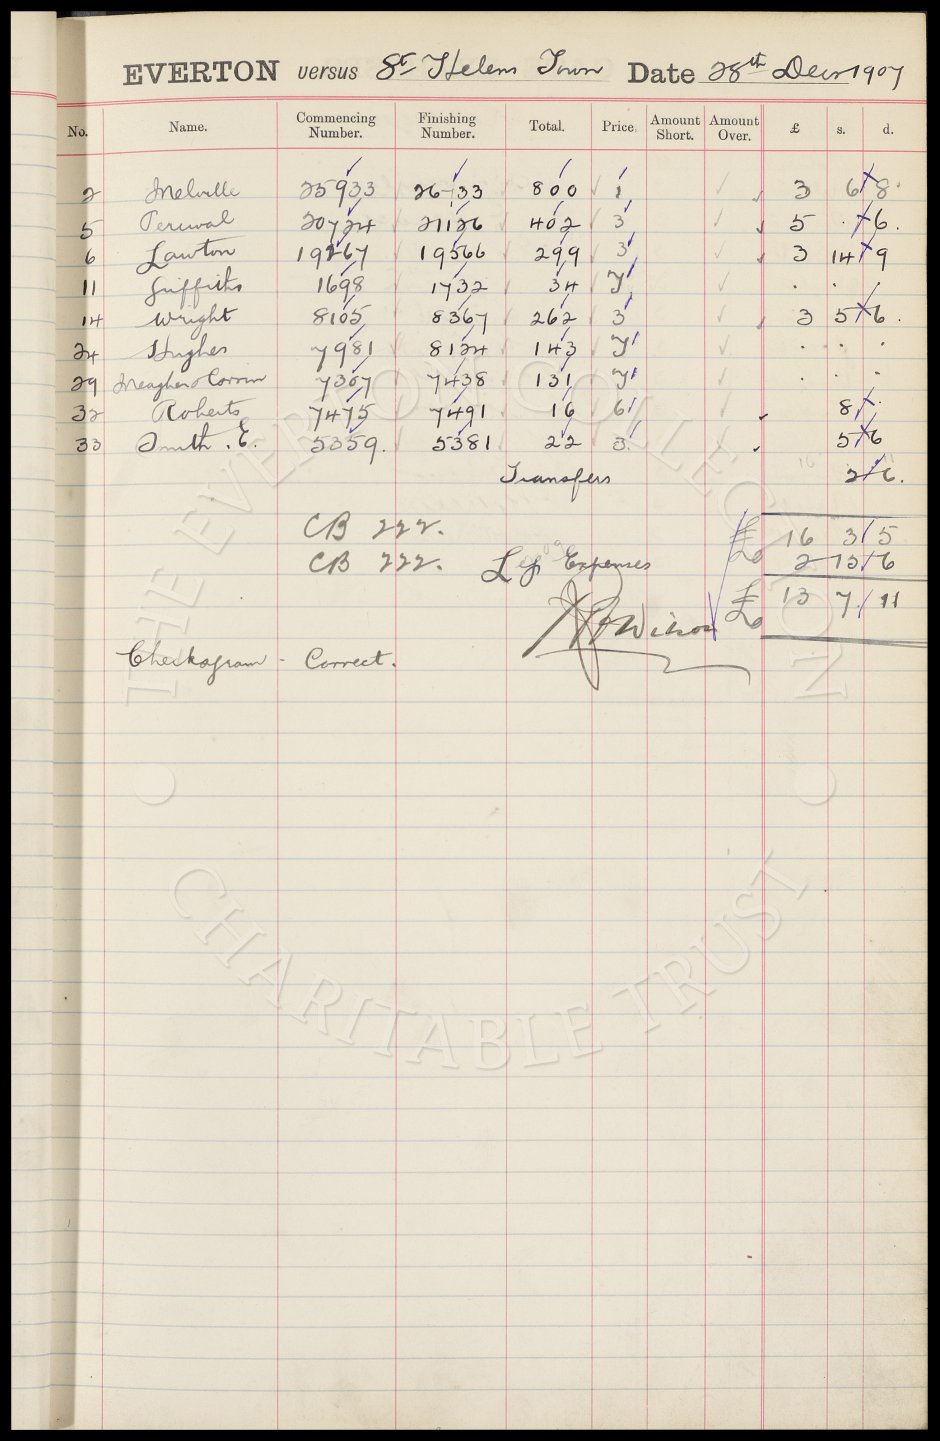 EVERTON versus St Helens Town Date 28th Decr 1907
No. Name. Commencing Number. Finishing Number. Total. Price. Amount Short. Amount Over. £ s. d.
2 Melville 25933 26733 800 1 3 6/8.
5 Percival 20724 21126 402 3 5 . /6.
6 Lawton 19267 19566 299 3 3 14/9
11 Griffiths 1698 1732 34 T . . /
14 Wright 8105 8367 262 3 3 5/6.
24 Hughes 7981 8124 143 T . . .
29 Meagher & Corrin 7307 7438 131 T . . .
32 Roberts 7475 7491 16 6 8/.
33 Smith. E. 5359. 5381 22 3. 5/6
Transfers 2/6.
CB 222. £ 16 3/5
CB 222. Less Expenses 2 15/6
£ 13 7/11
Wilson
Checkagram - Correct.
THE EVERTON COLLECTION
CHARITABLE TRUST